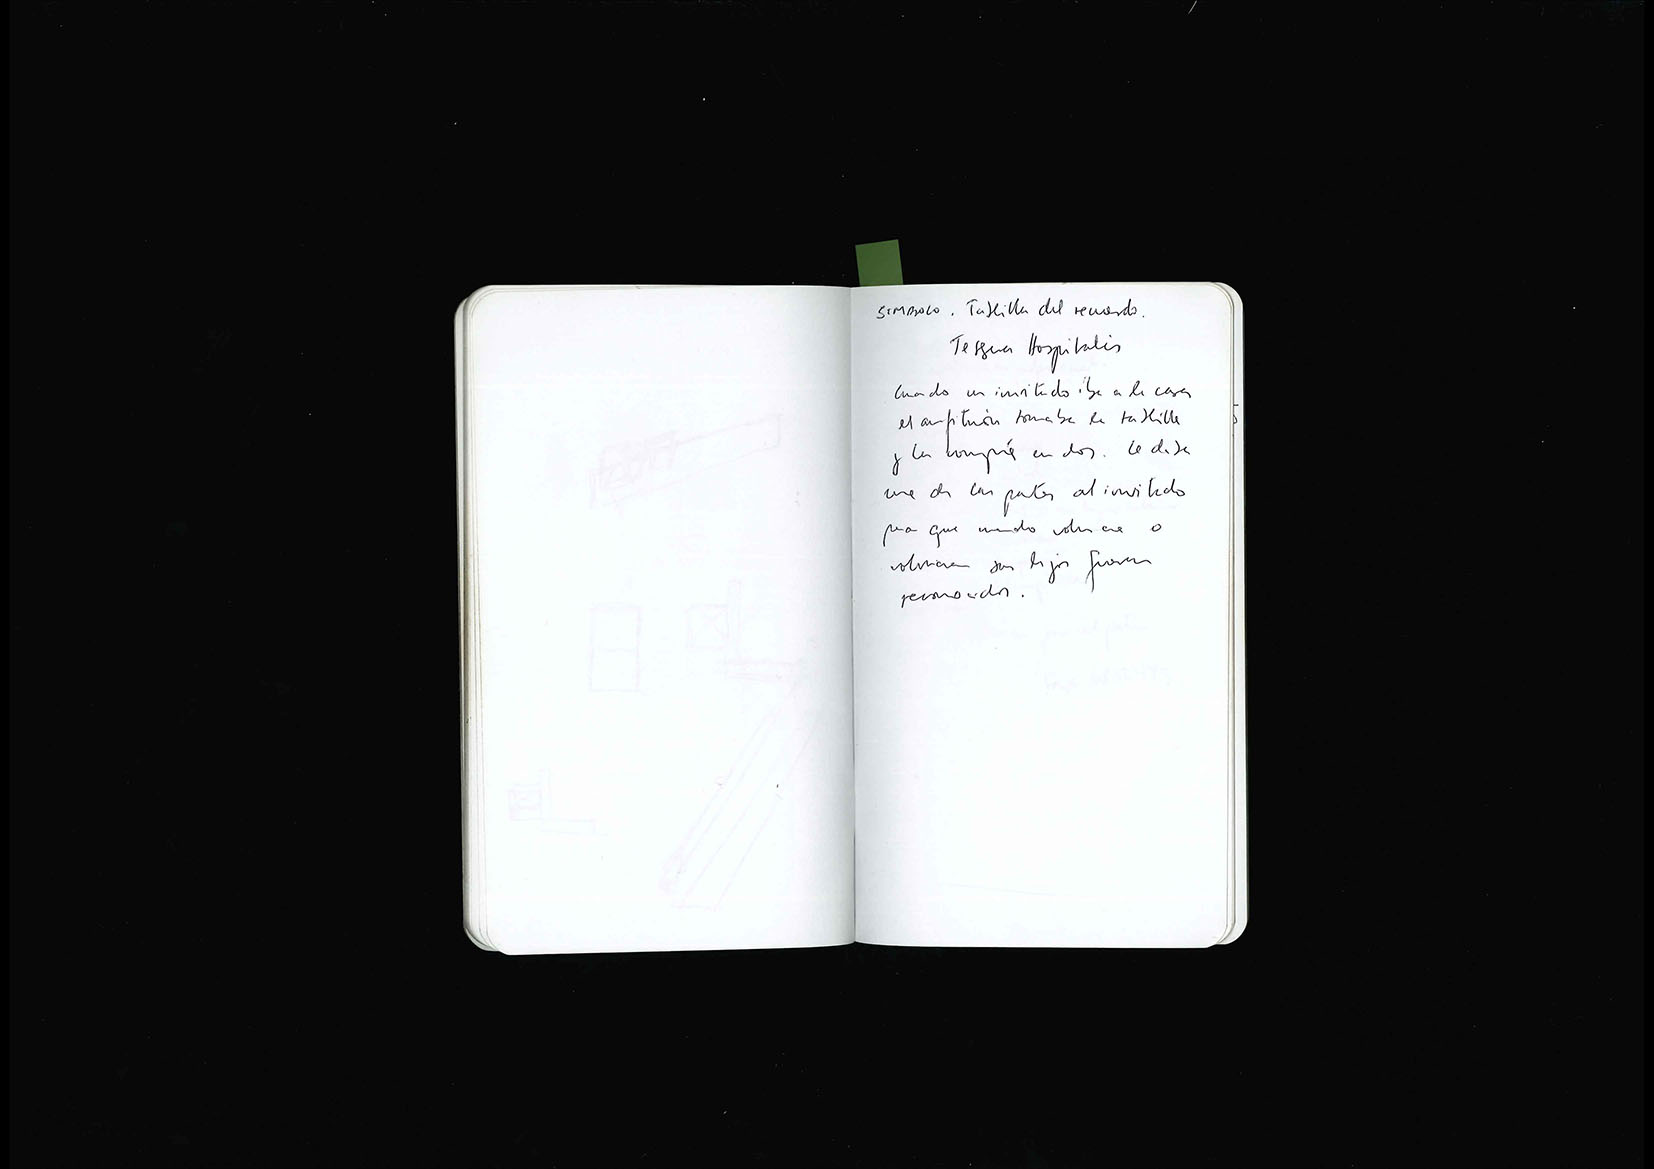 SIMBOLO. Tablilla del recuerdo.
Tessera Hospitalis
Cuando un invitado iba a la casa
el anfitrión tomaba la tablilla
y la rompía en dos. Le daba
una de las partes al invitado
para que cuando volviese o
volvieran sus hijos fueran
reconocidos.